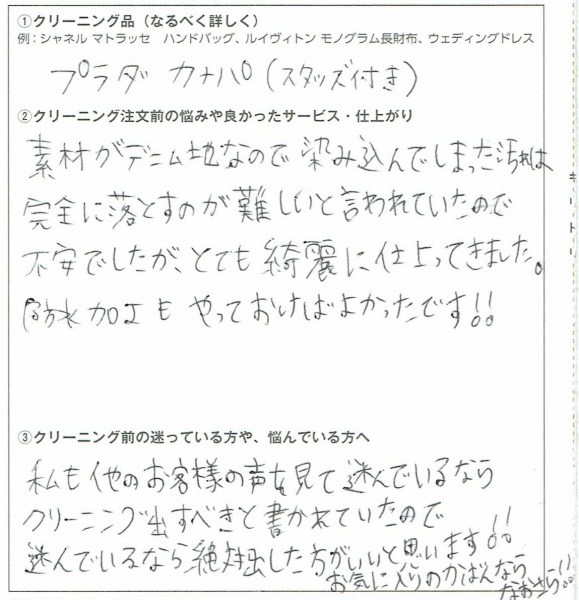 ①クリーニング品（なるべく詳しく）
例：シャネル マトラッセ　ハンドバッグ、ルイヴィトン モノグラム長財布、ウェディングドレス
プラダ カナパ（スタッズ付き）
②クリーニング注文前の悩みや良かったサービス・仕上がり
素材がデニム地なので染み込んでしまった汚れは
完全に落とすのが難しいと言われていたので
不安でしたが、とても綺麗に仕上ってきました。
防水加工もやっておけばよかったです!!
③クリーニング前の迷っている方や、悩んでいる方へ
私も他のお客様の声を見て迷んでいるなら
クリーニング出すべきと書かれていたので
迷んでいるなら絶対出した方がいいと思います!!
お気に入りのかばんなら
なおさら!!
キリトリ